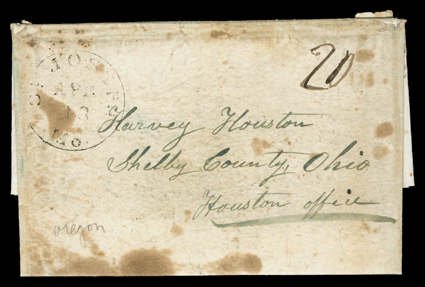 ST. JOSEPH
APR
13
Mo.
20
Harvey Houston
Shelby County, Ohio
Houston office
oregon